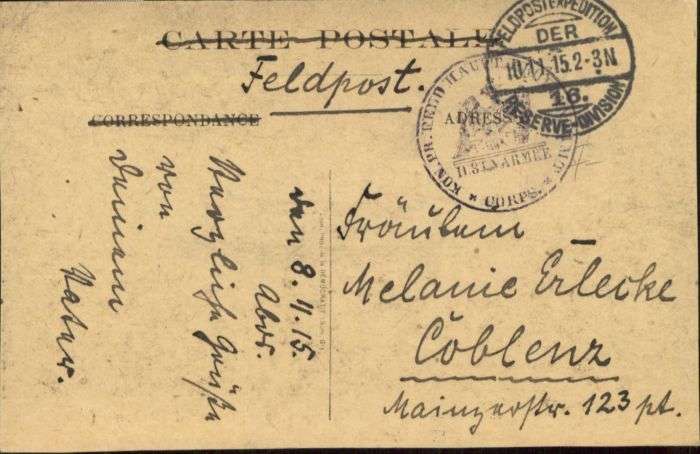 CARTE POSTALE
Feldpost.
CORRESPONDANCE
ADRESSE
FELDPOSTEXPEDITION
DER
10.11.15.2-3N
16.
RESERVE-DIVISION
CORPS.
den 8.11.15.
Abds.
Herzliche Grüße
von
Deinem
Vater.
Fräulein
Melanie Erlecke
Coblenz
Mainzerstr. 123 pt.